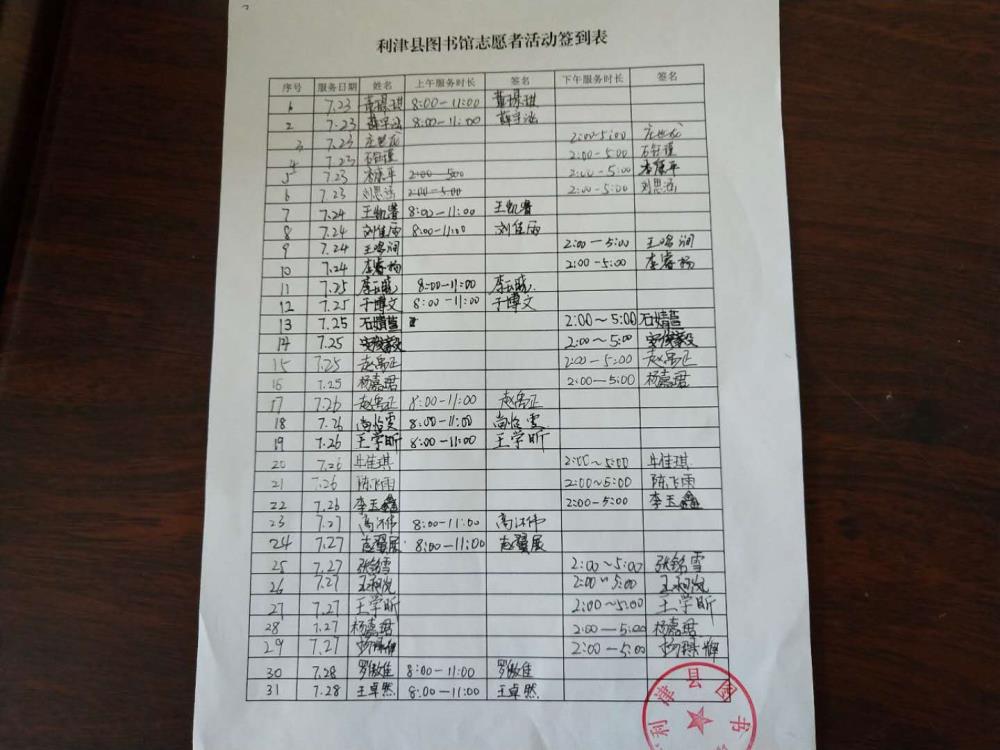 利津县图书馆志愿者活动签到表
序号 服务日期 姓名 上午服务时长 签名 下午服务时长 签名
1 7.23 8:00-11:00
2 7.23 薛宇涵 8:00-11:00 薛宇涵
3 7.23 庄世龙 2:00-5:00 庄世龙
4 7.23 石钰瑾 2:00-5:00 石钰瑾
5 7.23 李康平 2:00-5:00 2:00-5:00 李康平
6 7.23 刘思涵 2:00-5:00 2:00-5:00 刘思涵
7 7.24 王凯睿 8:00-11:00 王凯睿
8 7.24 刘佳雨 8:00-11:00 刘佳雨
9 7.24 王鸣润 2:00-5:00 王鸣润
10 7.24 李睿杨 2:00-5:00 李睿杨
11 7.25 8:00-11:00
12 7.25 于博文 8:00-11:00 于博文
13 7.25 石婧萱 2:00~5:00 石婧萱
14 7.25 安俊毅 2:00~5:00 安俊毅
15 7.25 赵禹正 2:00-5:00 赵禹正
16 7.25 杨嘉珺 2:00-5:00 杨嘉珺
17 7.26 赵禹正 8:00-11:00 赵禹正
18 7.26 尚怡雯 8:00-11:00 尚怡雯
19 7.26 王学昕 8:00-11:00 王学昕
20 7.26 牛佳琪 2:00~5:00 牛佳琪
21 7.26 陈飞雨 2:00~5:00 陈飞雨
22 7.26 李玉鑫 2:00-5:00 李玉鑫
23 7.27 高沐伟 8:00-11:00 高沐伟
24 7.27 赵翼展 8:00-11:00 赵翼展
25 7.27 张铭雪 2:00~5:00 张铭雪
26 7.27 2:00~5:00
27 7.27 王学昕 2:00~5:00 王学昕
28 7.27 杨嘉珺 2:00-5:00 杨嘉珺
29 7.27 2:00-5:00
30 7.28 罗傲佳 8:00-11:00 罗傲佳
31 7.28 王卓然 8:00-11:00 王卓然
利津县图书